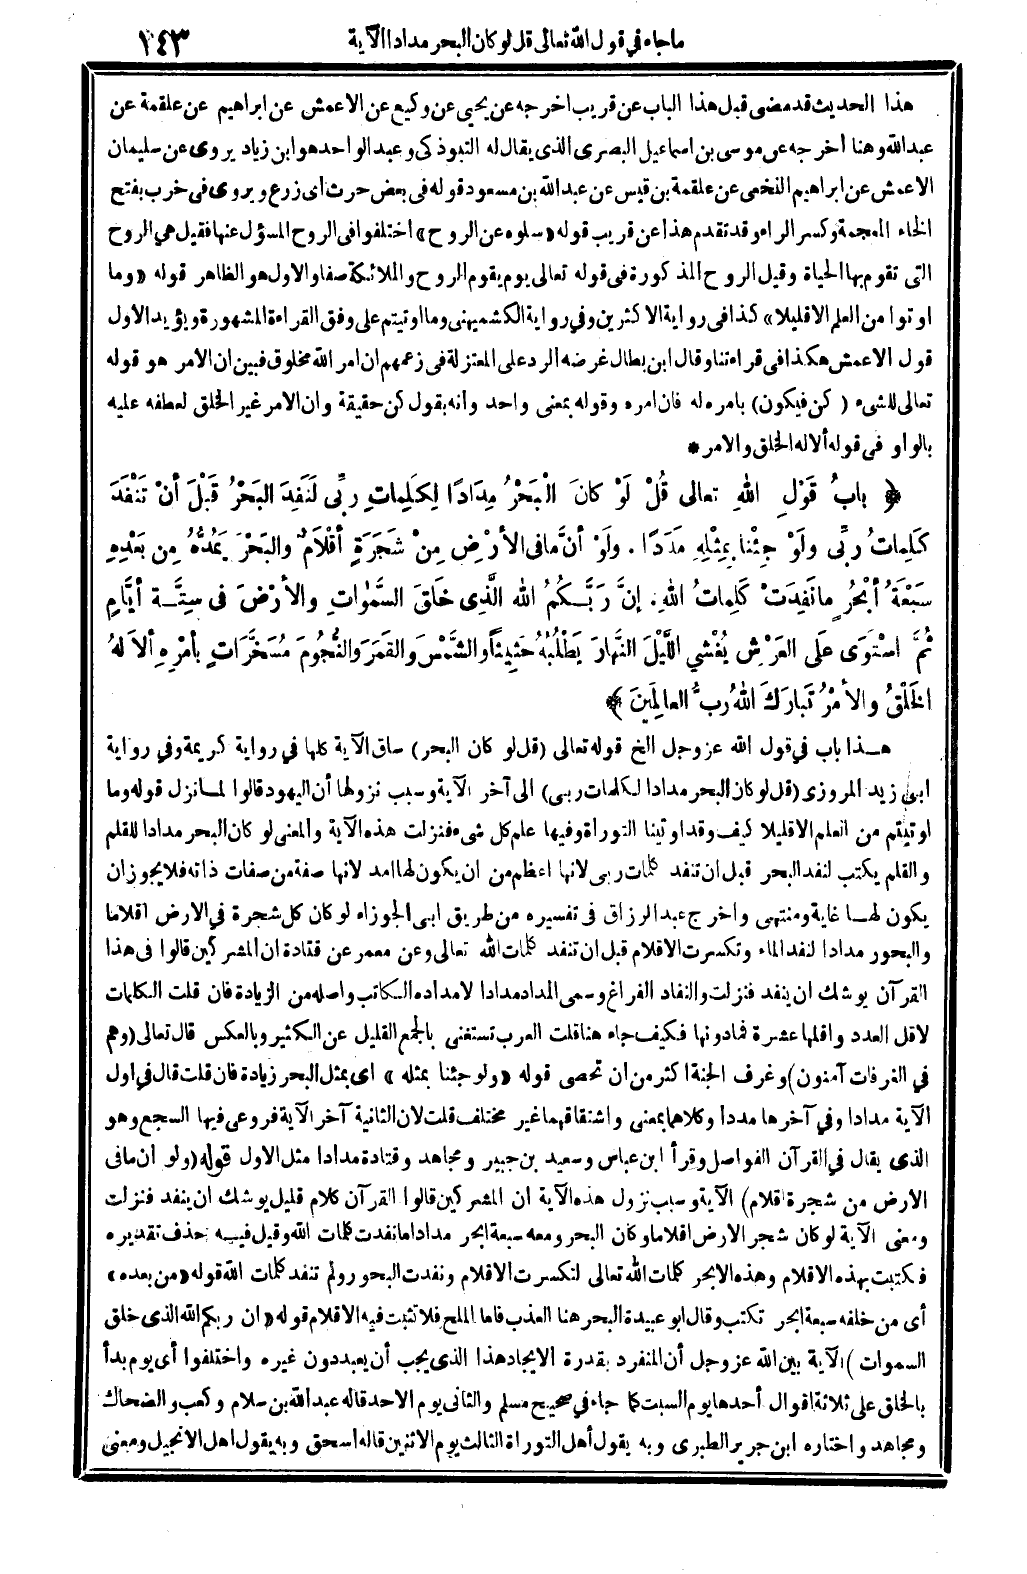 ما جاء في قول الله تعالى قل لو كان البحر مدادا الآية
١٤٣
هذا الحديث قد مضى قبل هذا الباب عن قريب اخرجه عن يحيى عن وكيع عن الاعمش عن ابراهيم عن علقمة عن
عبدالله وهنا أخرجه عن موسى بن اسماعيل البصرى الذى يقال له التبوذكى وعبد الواحد هو ابن زياد يروى عن سليمان
الاعمش عن ابراهيم النخعى عن علقمة بن قيس عن عبدالله بن مسعود قوله فى بعض حرث اى زرع ويروى فى خرب بفتح
الخاء المعجمة وكسر الراء وقد تقدم هذا عن قريب قوله «سلوه عن الروح» اختلفوا فى الروح المسؤل عنها فقيل هي الروح
التى تقوم بها الحياة وقيل الروح المذكورة فى قوله تعالى يوم يقوم الروح والملائكة صفا والاول هو الظاهر قوله «وما
اوتوا من العلم الا قليلا» كذا فى رواية الاكثرين وفي رواية الكشميهنى وما اوتيتم على وفق القراءة المشهورة ويؤيد الاول
قول الاعمش هكذا فى قراءتنا وقال ابن بطال غرضه الرد على المعتزلة فى زعمهم ان امر الله مخلوق فبين ان الامر هو قوله
تعالى للشىء (كن فيكون) بامره له فان امره وقوله بمعنى واحد وانه بقول كن حقيقة وان الامر غير الخلق لعطفه عليه
بالواو فى قوله ألا له الخلق والامر *
﴿ بابُ قَوْلِ اللهِ تعالى قُلْ لَوْ كانَ الْبَحْرُ مِدَادًا لِكَلِماتِ ربِّى لَنَفِدَ البَحْرُ قَبْلَ أنْ تَنْفَدَ
كَلِماتُ ربِّى ولَوْ جِئْنا بِمِثْلِهِ مَدَدًا . ولَوْ أنَّ ما فى الأرْضِ مِنْ شَجَرَةٍ أقْلَامٌ والبَحْرُ يَمُدُّهُ مِن بَعْدِهِ
سَبْعَةُ أبْحُرٍ ما نَفِدَتْ كَلِماتُ اللهِ. إنَّ رَبَّكُمُ الله الَّذِى خلَقَ السَّمٰوَاتِ والأرْضَ فى سِتَّةِ أيَّامٍ
ثُمَّ اسْتَوَى علَى العَرْشِ يُغْشي اللَّيْلَ النَّهارَ يَطْلُبُهُ حَثِيثًا والشَّمْسَ والقَمَرَ والنُّجُومَ مُسَخَّرَاتٍ بأمْرِهِ ألاَ لهُ
الخَلْقُ والأمْرُ تَبارَكَ اللهُ رَبُّ العالَمِينَ ﴾
هذا باب في قول الله عز وجل الخ قوله تعالى (قل لو كان البحر) ساق الآية كلها في رواية كريمة وفي رواية
ابى زيد المروزى (قل لو كان البحر مدادا لكلمات ربى) الى آخر الآية وسبب نزولها أن اليهود قالوا لما نزل قوله وما
اوتيتم من العلم الا قليلا كيف وقد اوتينا التوراة وفيها علم كل شىء فنزلت هذه الآية والمعنى لو كان البحر مدادا للقلم
والقلم يكتب لنفد البحر قبل ان تنفد كلمات ربى لانها اعظم من ان يكون لها امد لانها صفة من صفات ذاته فلا يجوز ان
يكون لها غاية ومنتهى واخرج عبد الرزاق فى تفسيره من طريق ابى الجوزاء لو كان كل شجرة في الارض اقلاما
والبحور مدادا لنفد الماء وتكسرت الاقلام قبل ان تنفد كلمات الله تعالى وعن معمر عن قتادة ان المشركين قالوا فى هذا
القرآن يوشك ان ينفد فنزلت والنفاد الفراغ وسمى المداد مدادا لامداده الكاتب واصله من الزيادة فان قلت الكلمات
لاقل العدد واقلها عشرة فما دونها فكيف جاء هنا قلت العرب تستغنى بالجمع القليل عن الكثير وبالعكس قال تعالى (وهم
في الغرفات آمنون) وغرف الجنة اكثر من ان تحصى قوله «ولو جئنا بمثله» اى بمثل البحر زيادة فان قلت قال في اول
الآية مدادا وفي آخرها مددا وكلاهما بمعنى واشتقاقهما غير مختلف قلت لان الثانية آخر الآية فروعى فيها السجع وهو
الذى يقال في القرآن الفواصل وقرأ ابن عباس وسعيد بن جبير ومجاهد وقتادة مدادا مثل الاول قوله (ولو ان ما فى
الارض من شجرة اقلام) الآية وسبب نزول هذه الآية ان المشركين قالوا القرآن كلام قليل يوشك ان ينفد فنزلت
ومعنى الآية لو كان شجر الارض اقلاما وكان البحر ومعه سبعة ابحر مدادا ما نفدت كلمات الله وقيل فيه حذف تقديره
فكتبت بهذه الاقلام وهذه الابحر كلمات الله تعالى لتكسرت الاقلام ونفدت البحور ولم تنفد كلمات الله قوله «من بعده»
أى من خلفه سبعة ابحر تكتب وقال ابو عبيدة البحر هنا العذب فاما الملح فلا تثبت فيه الاقلام قوله «ان ربكم الله الذى خلق
السموات) الآية بين الله عز وجل أن المنفرد بقدرة الايجاد هذا الذى يجب أن يعبد دون غيره واختلفوا أى يوم بدأ
بالخلق على ثلاثة اقوال أحدها يوم السبت كما جاء في صحيح مسلم والثانى يوم الاحد قاله عبدالله بن سلام وكعب والضحاك
ومجاهد واختاره ابن جرير الطبرى وبه يقول أهل التوراة الثالث يوم الاثنين قاله اسحق وبه يقول اهل الانجيل ومعنى